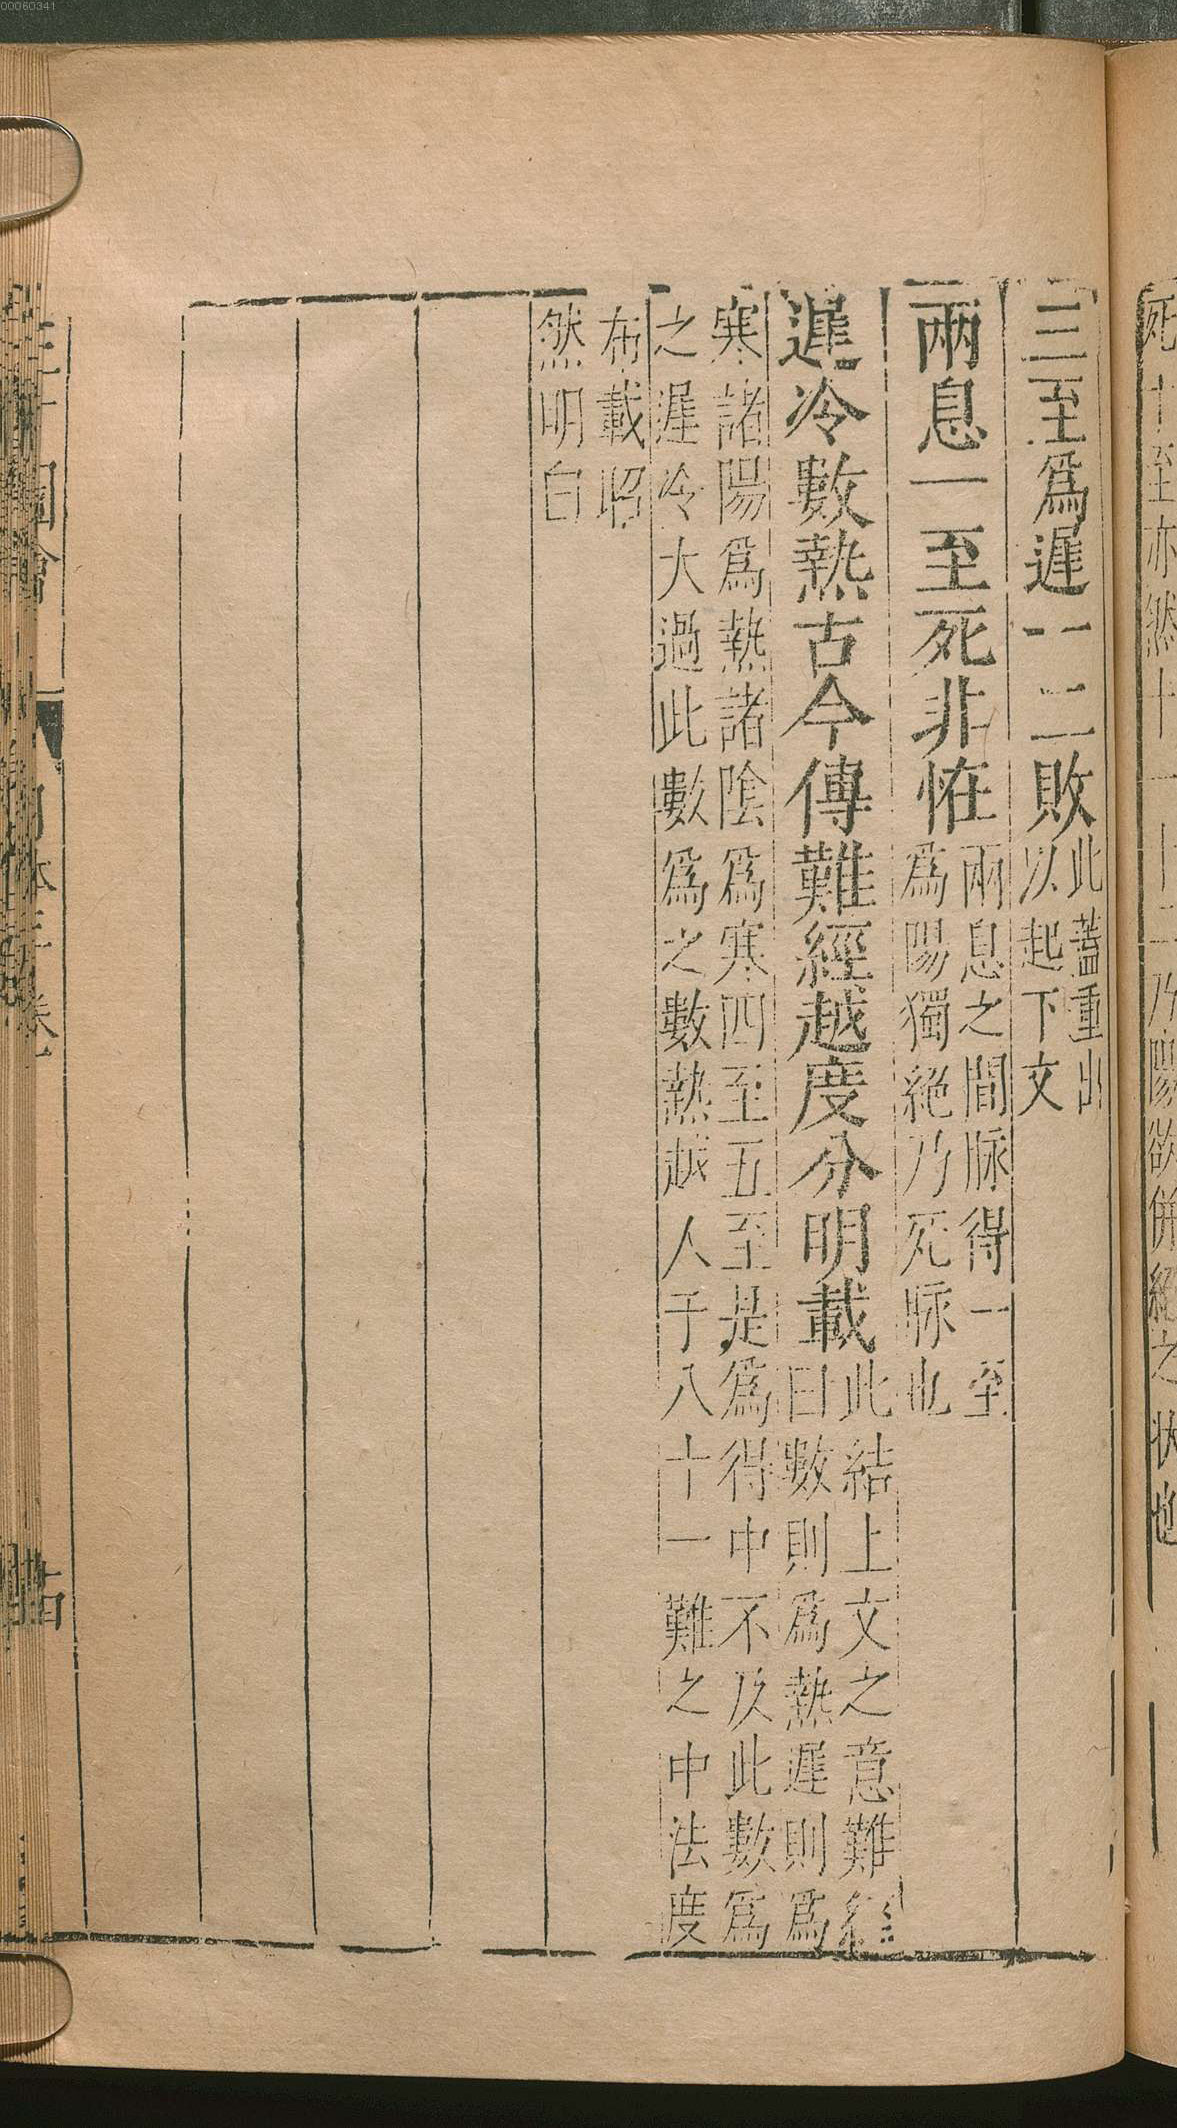 00060341
死十至亦然十一十二乃陽欲併絕之状也
三至爲遲一二敗此蓋重出
以起下文
兩息一至死非恠兩息之間脉得一至
爲陽獨絕乃死脉也
遲冷數熱古今傳難經越度分明載此結上文之意難經
曰數則爲熱遲則爲
寒諸陽爲熱諸陰爲寒四至五至是爲得中不及此數爲
之遲冷大過此數爲之數熱越人于八十一難之中法度
布載昭
然明白